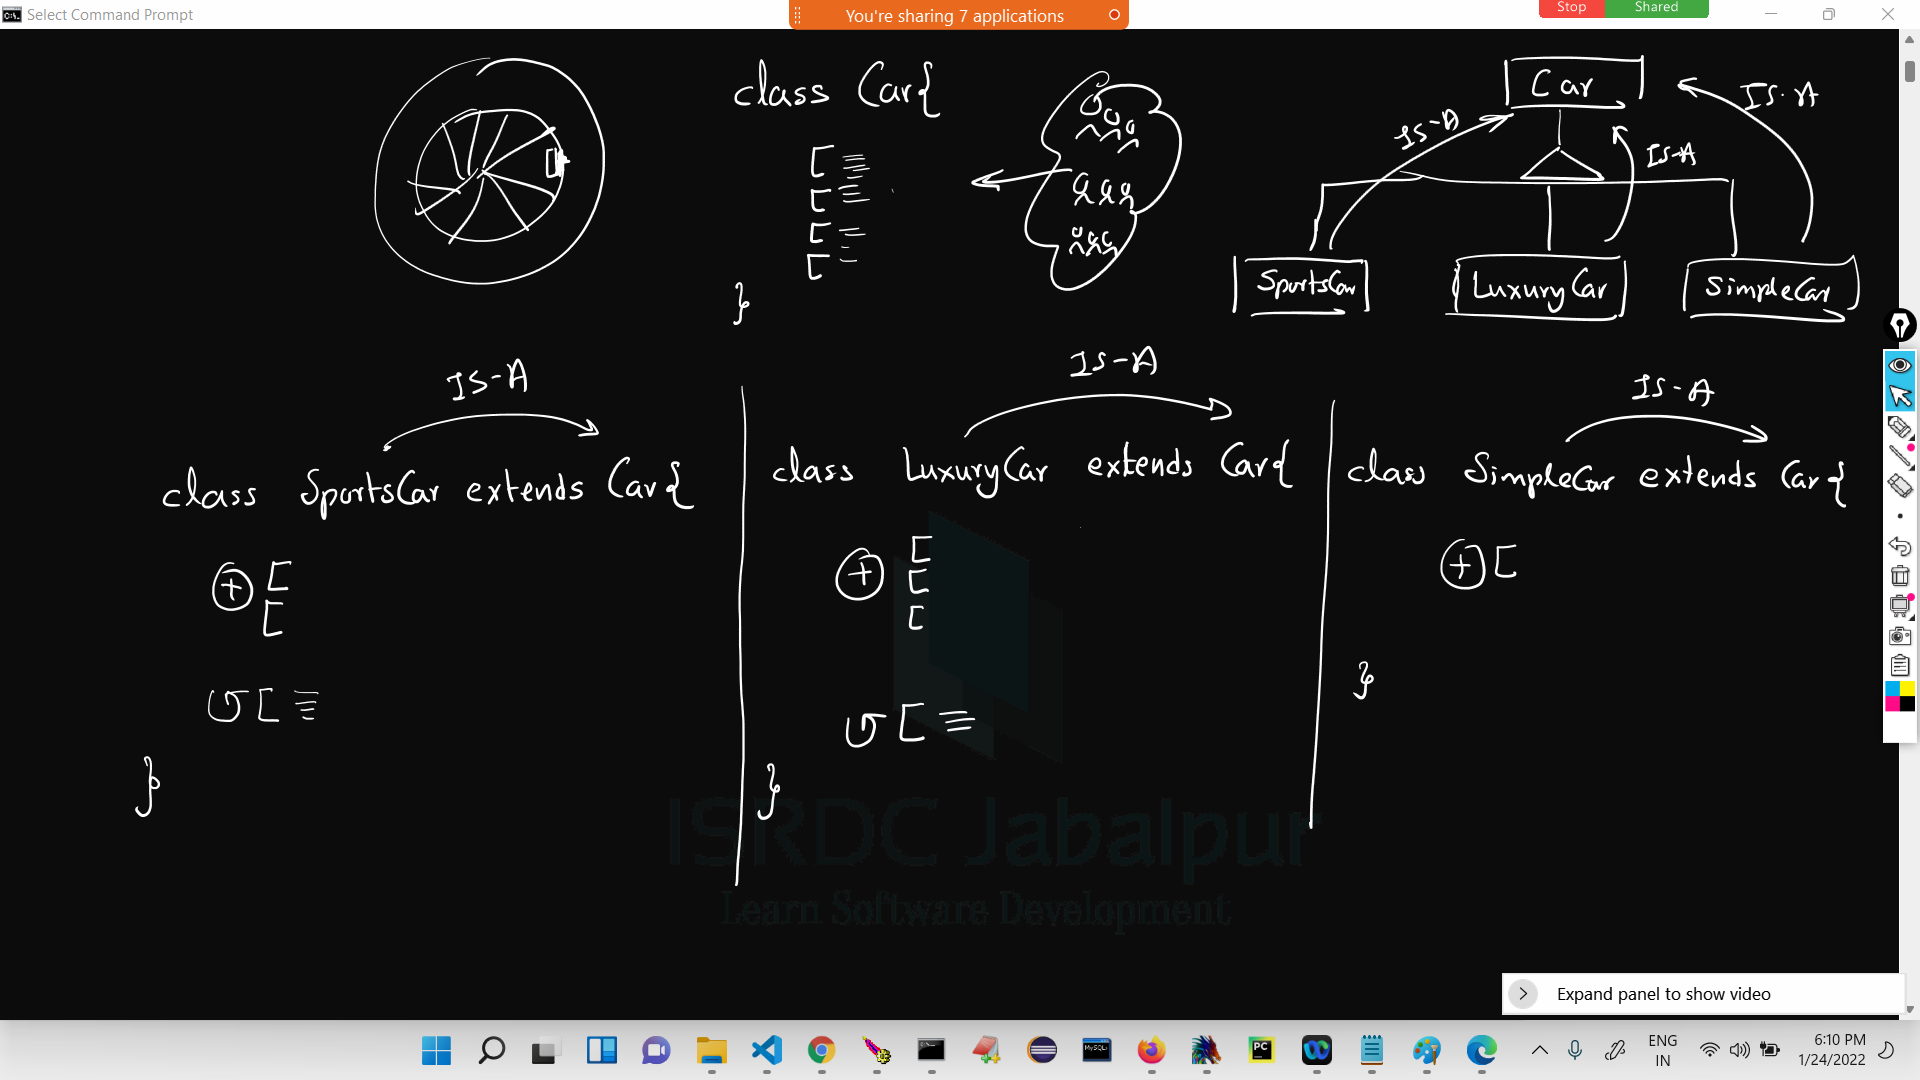 Select Command Prompt
You're sharing 7 applications
Stop
Shared
class Car{
}
Car
IS-A
IS-A
IS-A
SportsCar
LuxuryCar
SimpleCar
IS-A
class SportsCar extends Car{
+
}
IS-A
class LuxuryCar extends Car{
+
}
IS-A
class SimpleCar extends Car{
+
}
ISRDC Jabalpur
Learn Software Development
Expand panel to show video
MySQL
PC
ENG
IN
6:10 PM
1/24/2022